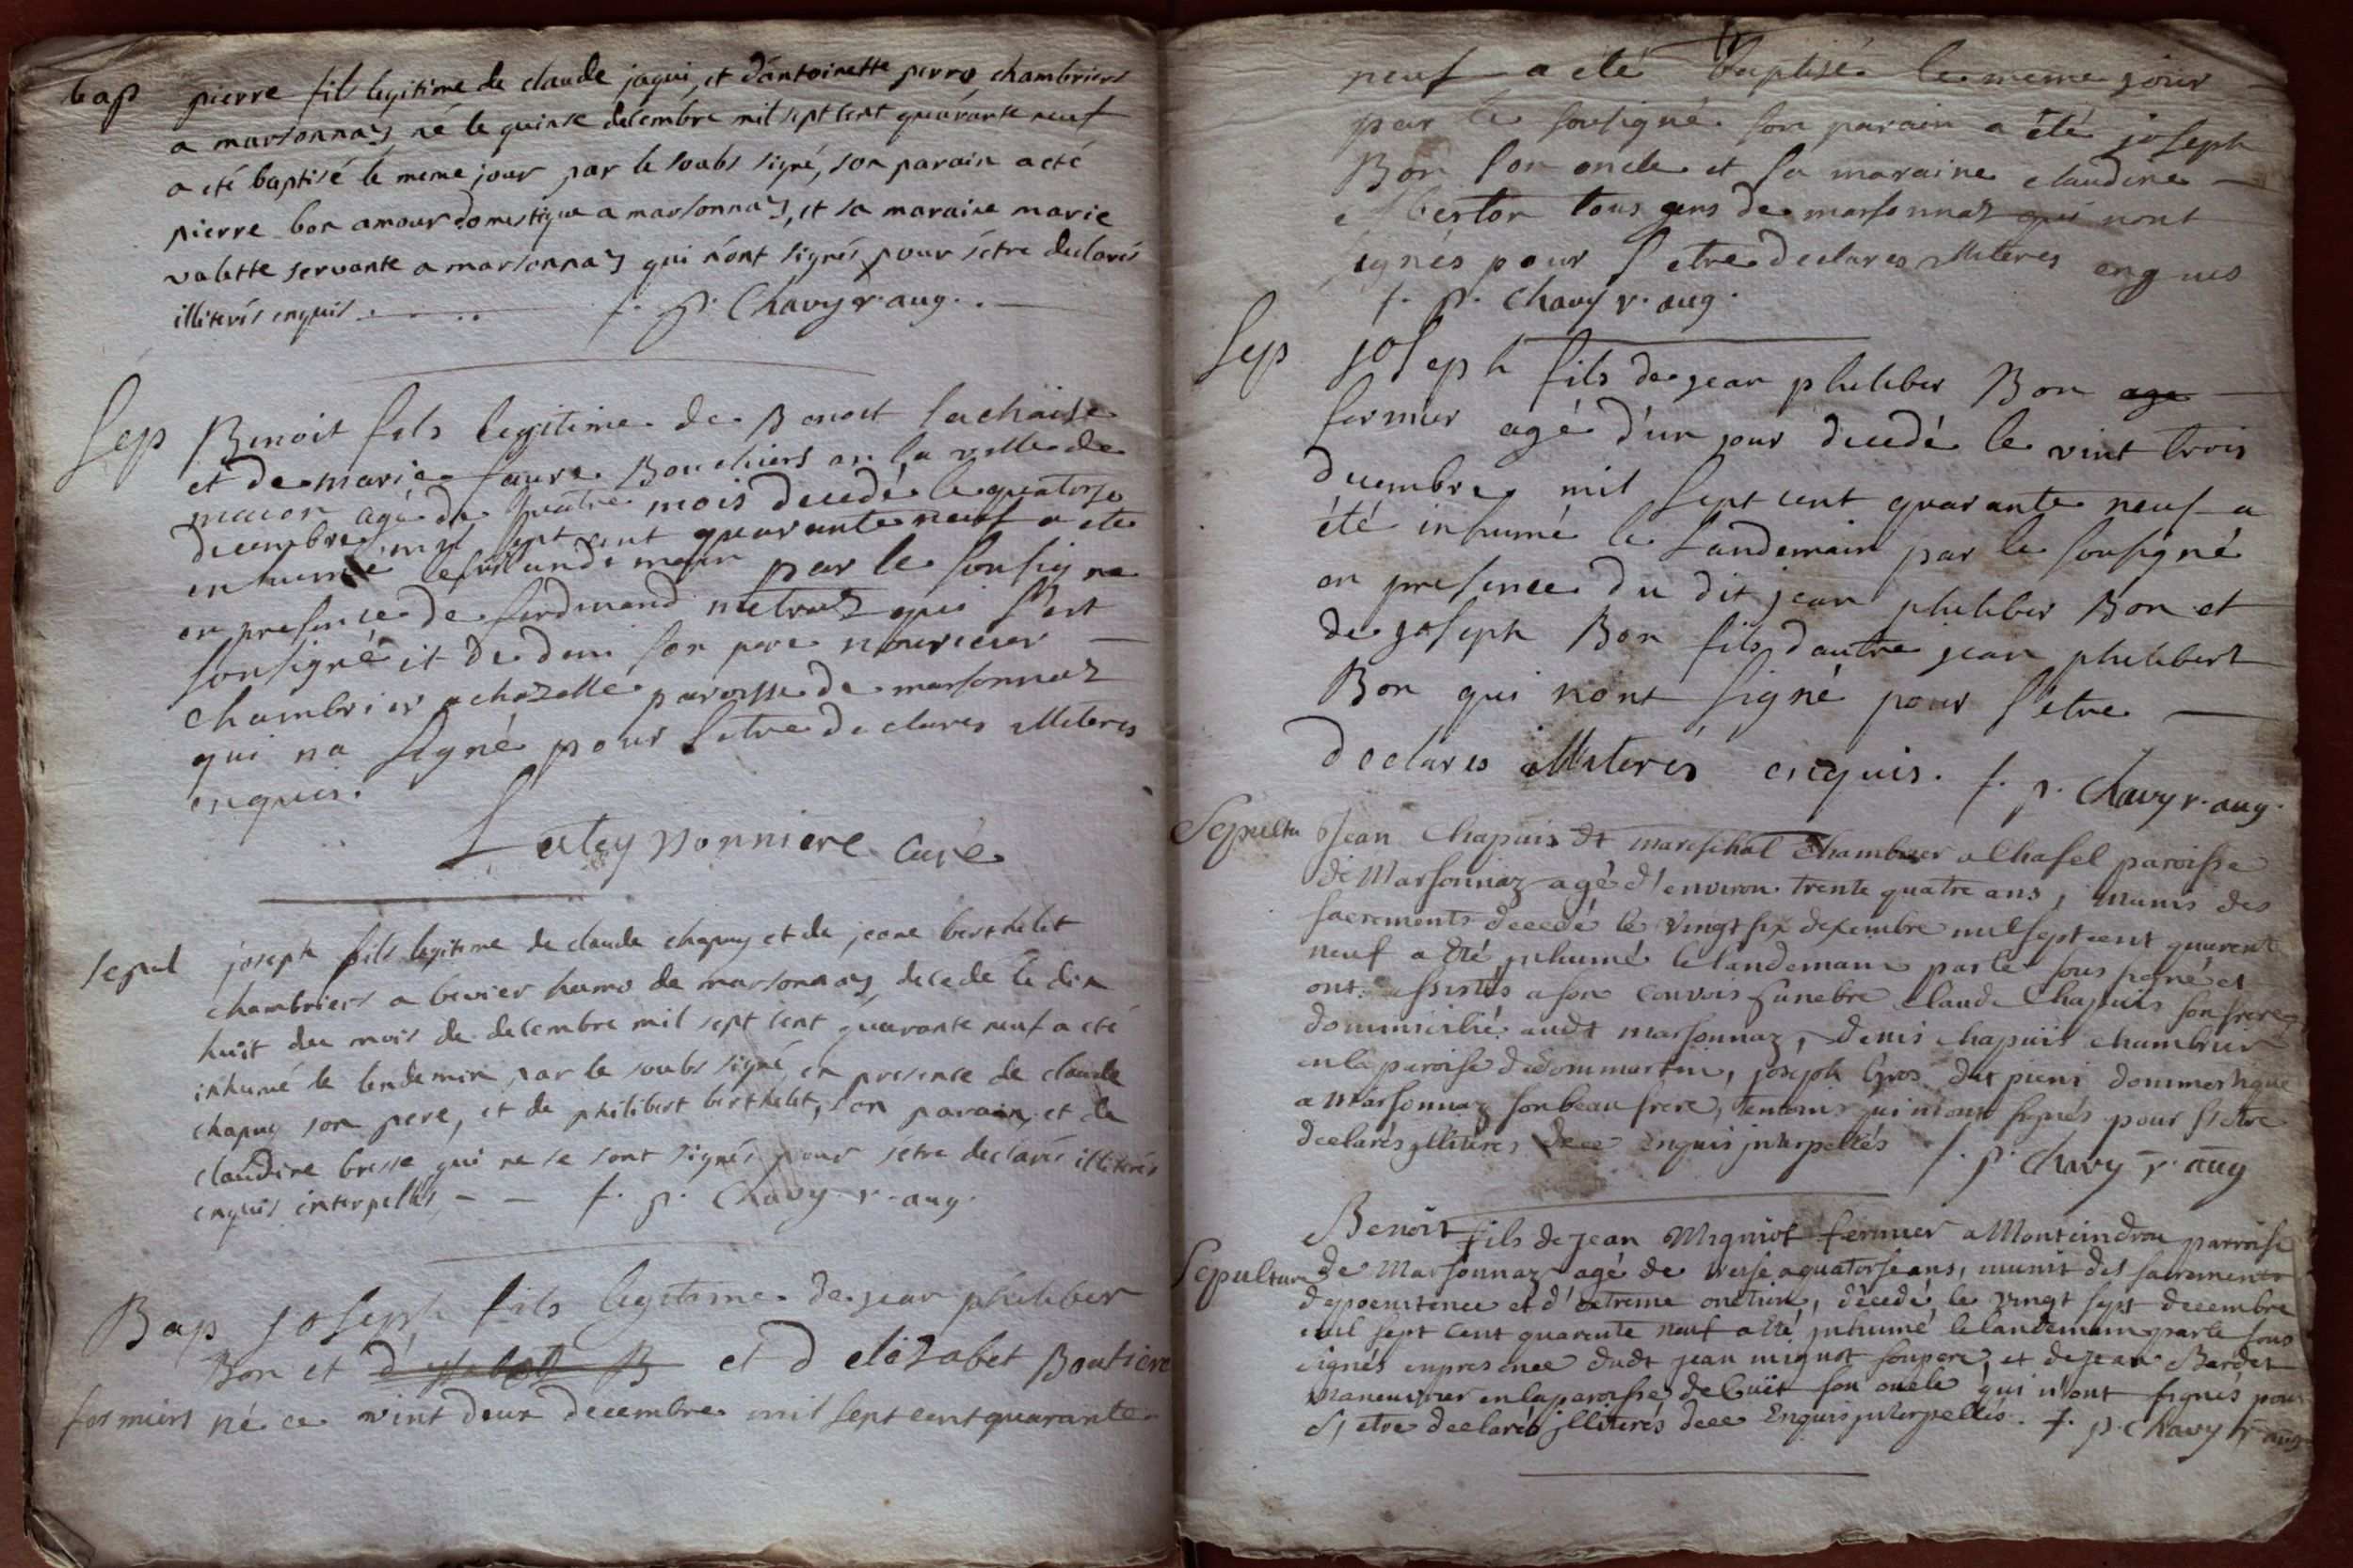 bap pierre fils legitime de claude jaqui, et d'antoinette perro chambriers
a marsonnas, né le quinse decembre mil sept cent quarante neuf
a été baptisé le meme jour par le soubs signé, son parain a eté
pierre bon amour domestique a marsonnas, et sa maraine marie
valette servante a marsonnas qui n'ont signés pour s'etre declarés
illiterés enquis f. p. Chavy r. aug.
Sep Benoit fils legitime de Benoit lachaise
et de marie faure Bouchiers en la ville de
macon agé de quatre mois decedé le quatorse
decembre mil sept cent quarante neuf a ete
inhumé le landemain par le sousigne
en presence de ferdinand qui s'est
sousigné et de son pere nouricier
chambrier a chazelle paroisse de marsonnaz
qui na signé pour s'etre declares illiteres
enquis.
curé
sepul joseph fils legitime de claude chapuy et de jeane berthelet
chambriers a bevier hamo de marsonnas, decedé le dix
huit du mois de decembre mil sept cent quarante neuf a eté
inhumé le lendemin par le soubs signé, en presence de claude
chapuy son pere, et de philibert berthelet, son parain, et de
claudine bresse qui ne se sont signés pour s'etre declarés illiterés
enquis interpellés, - - f. p. Chavy r. aug.
Bap joseph fils legitime de jean philiber
Bon et d' et d elizabet Boutiere
fermiers né ce vint deux decembre mil sept cent quarante
neuf a eté baptisé le meme jour
par le sousigné son parain a été joseph
Bon son oncle et sa maraine claudine
tous gens de marsonnaz qui nont
signés pour s'etre declares illiteres enquis
f. p. Chavy r. aug.
Sep joseph fils de jean philiber Bon age
fermier agé d'un jour decedé le vint trois
decembre mil sept cent quarante neuf a
été inhumé le landemain par le sousigné
en presence du dit jean philiber Bon et
de joseph Bon fils d'autre jean philibert
Bon qui nont signé pour s'etre
declares illiterés enquis. f. p. Chavy r. aug.
Sepultu Jean Chapuis dt mareschal Chambrier a Chasel paroisse
de Marsonnaz agé d'environ trente quatre ans, munis des
sacrements decedé le vingt six decembre mil sept cent quarente
neuf a Eté inhumé le landemain par le sous signé et
ont assistés a son convois funebre Claude Chapuis son frere
dommicilié audt marsonnaz, denis chapuis chambrier
en la paroise de dommartin, joseph Gros dommestique
a Marsonnaz son beau frere, temoins qui nont signés pour s'etre
declarés jlliterés dece enquis jnterpellés f. p. Chavy r. aug
Benoit fils de jean Migniot fermier a Monteindrou parroise
Sepulture de Marsonnaz agé de treise a quatorse ans, munit des sacrements
de poenitence et d'extreme onction, decedé le vingt sept decembre
mil sept cent quarente neuf a Eté jnhumé le landemain par le sous
signés en presence dudt jean mignot son pere, et de jean Bardet
Maneuvrier en la paroisse de Cuët son oncle qui n'ont signés pour
s'etre declarés jlliterés dece Enquis jnterpellés. f. p. Chavy r. aug